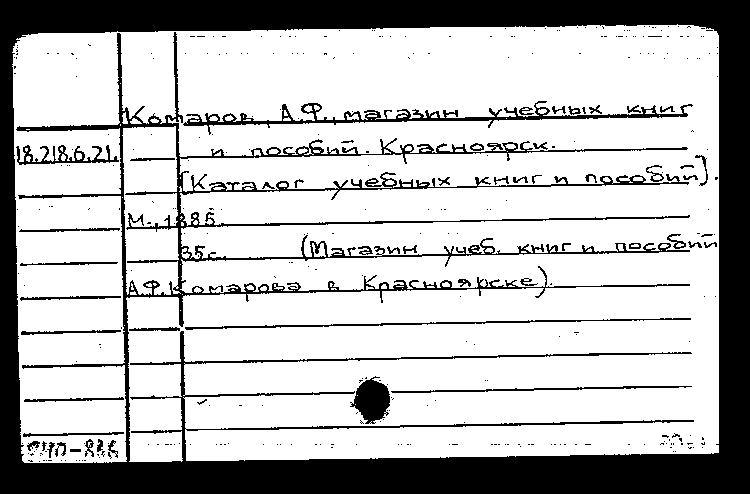 Комаров, А.Ф., магазин учебных книг
18.218.6.21. и пособий. Красноярск.
[Каталог учебных книг и пособий].
М., 1885.
35с. (Магазин учеб. книг и пособий
А.Ф.Комарова в Красноярске).